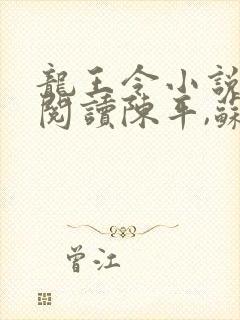 龍王令小說
閱讀陳平,蘇
曾江